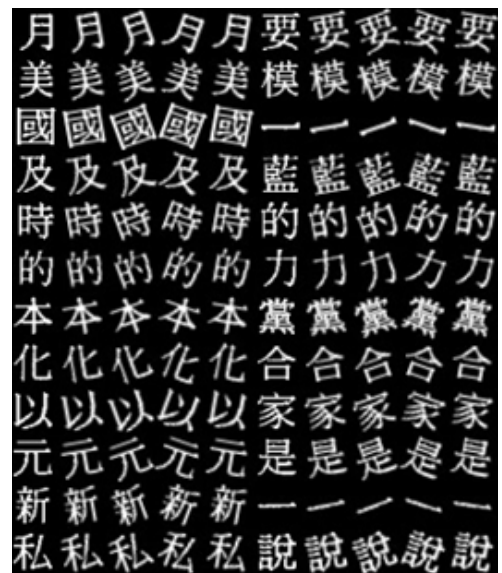 月月月月月要要要要要
美美美美美模模模模模
國國國國國一一一一一
及及及及及藍藍藍藍藍
時時時時時的的的的的
的的的的的力力力力力
本本本本本黨黨黨黨黨
化化化化化合合合合合
以以以以以家家家家家
元元元元元是是是是是
新新新新新一一一一一
私私私私私說說說說說